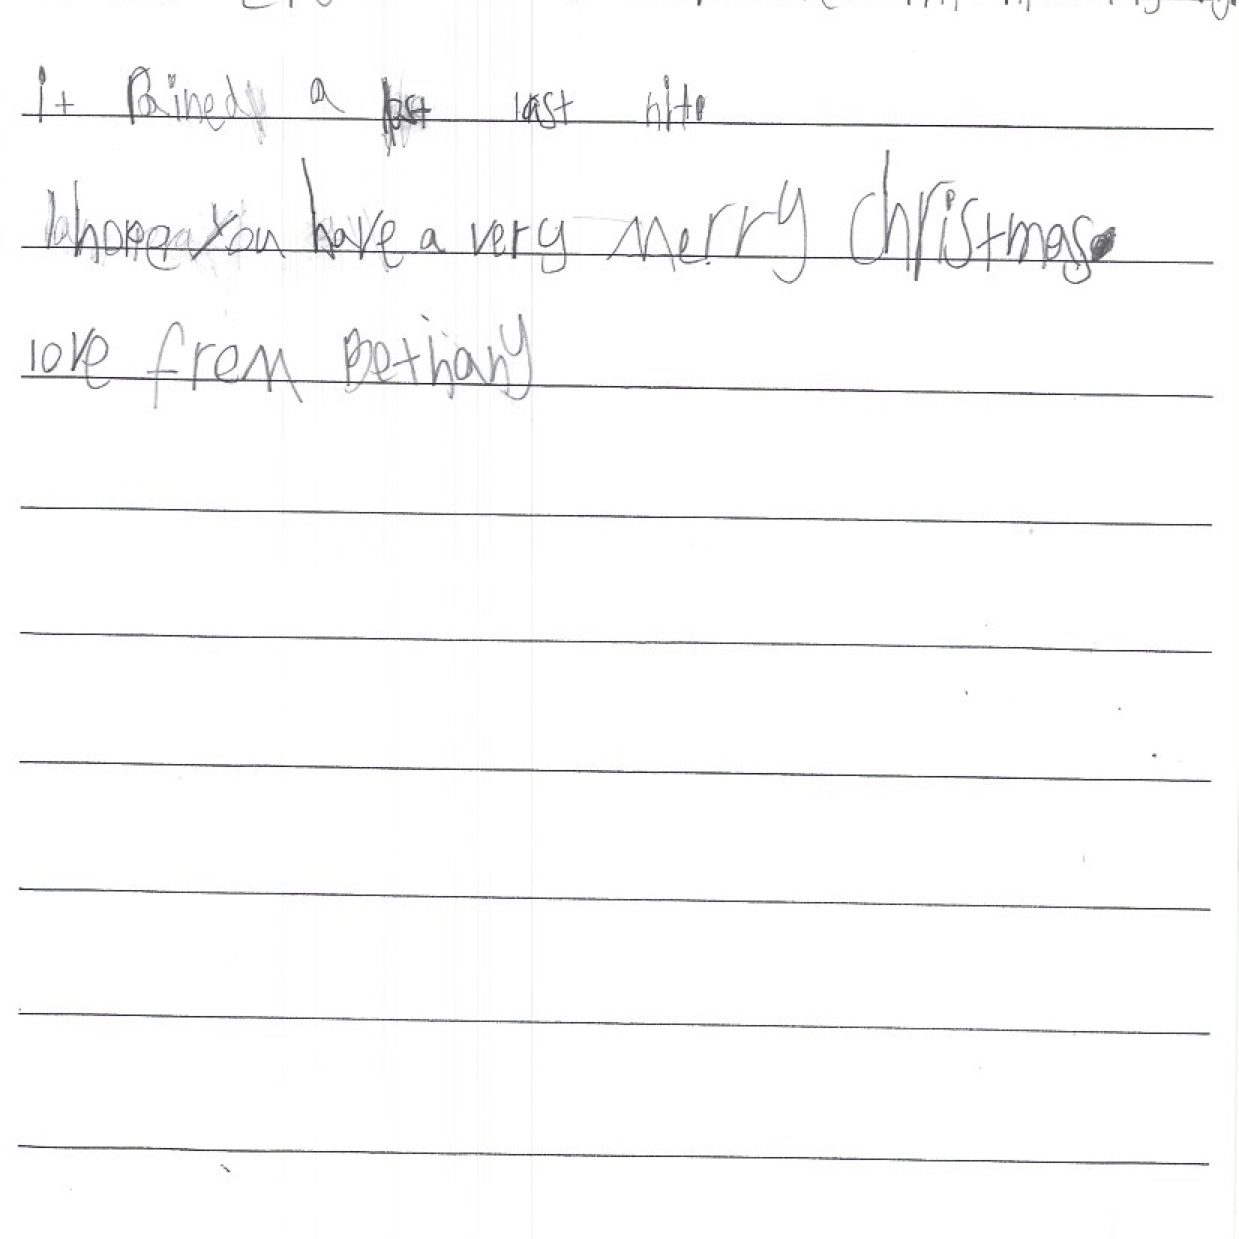 it Rained a lot last nite
I hope you have a very merry christmas.
love from Bethany